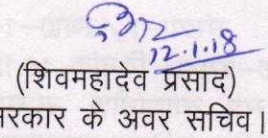 12.1.18
(शिवमहादेव प्रसाद)
रकार के अवर सचिव।